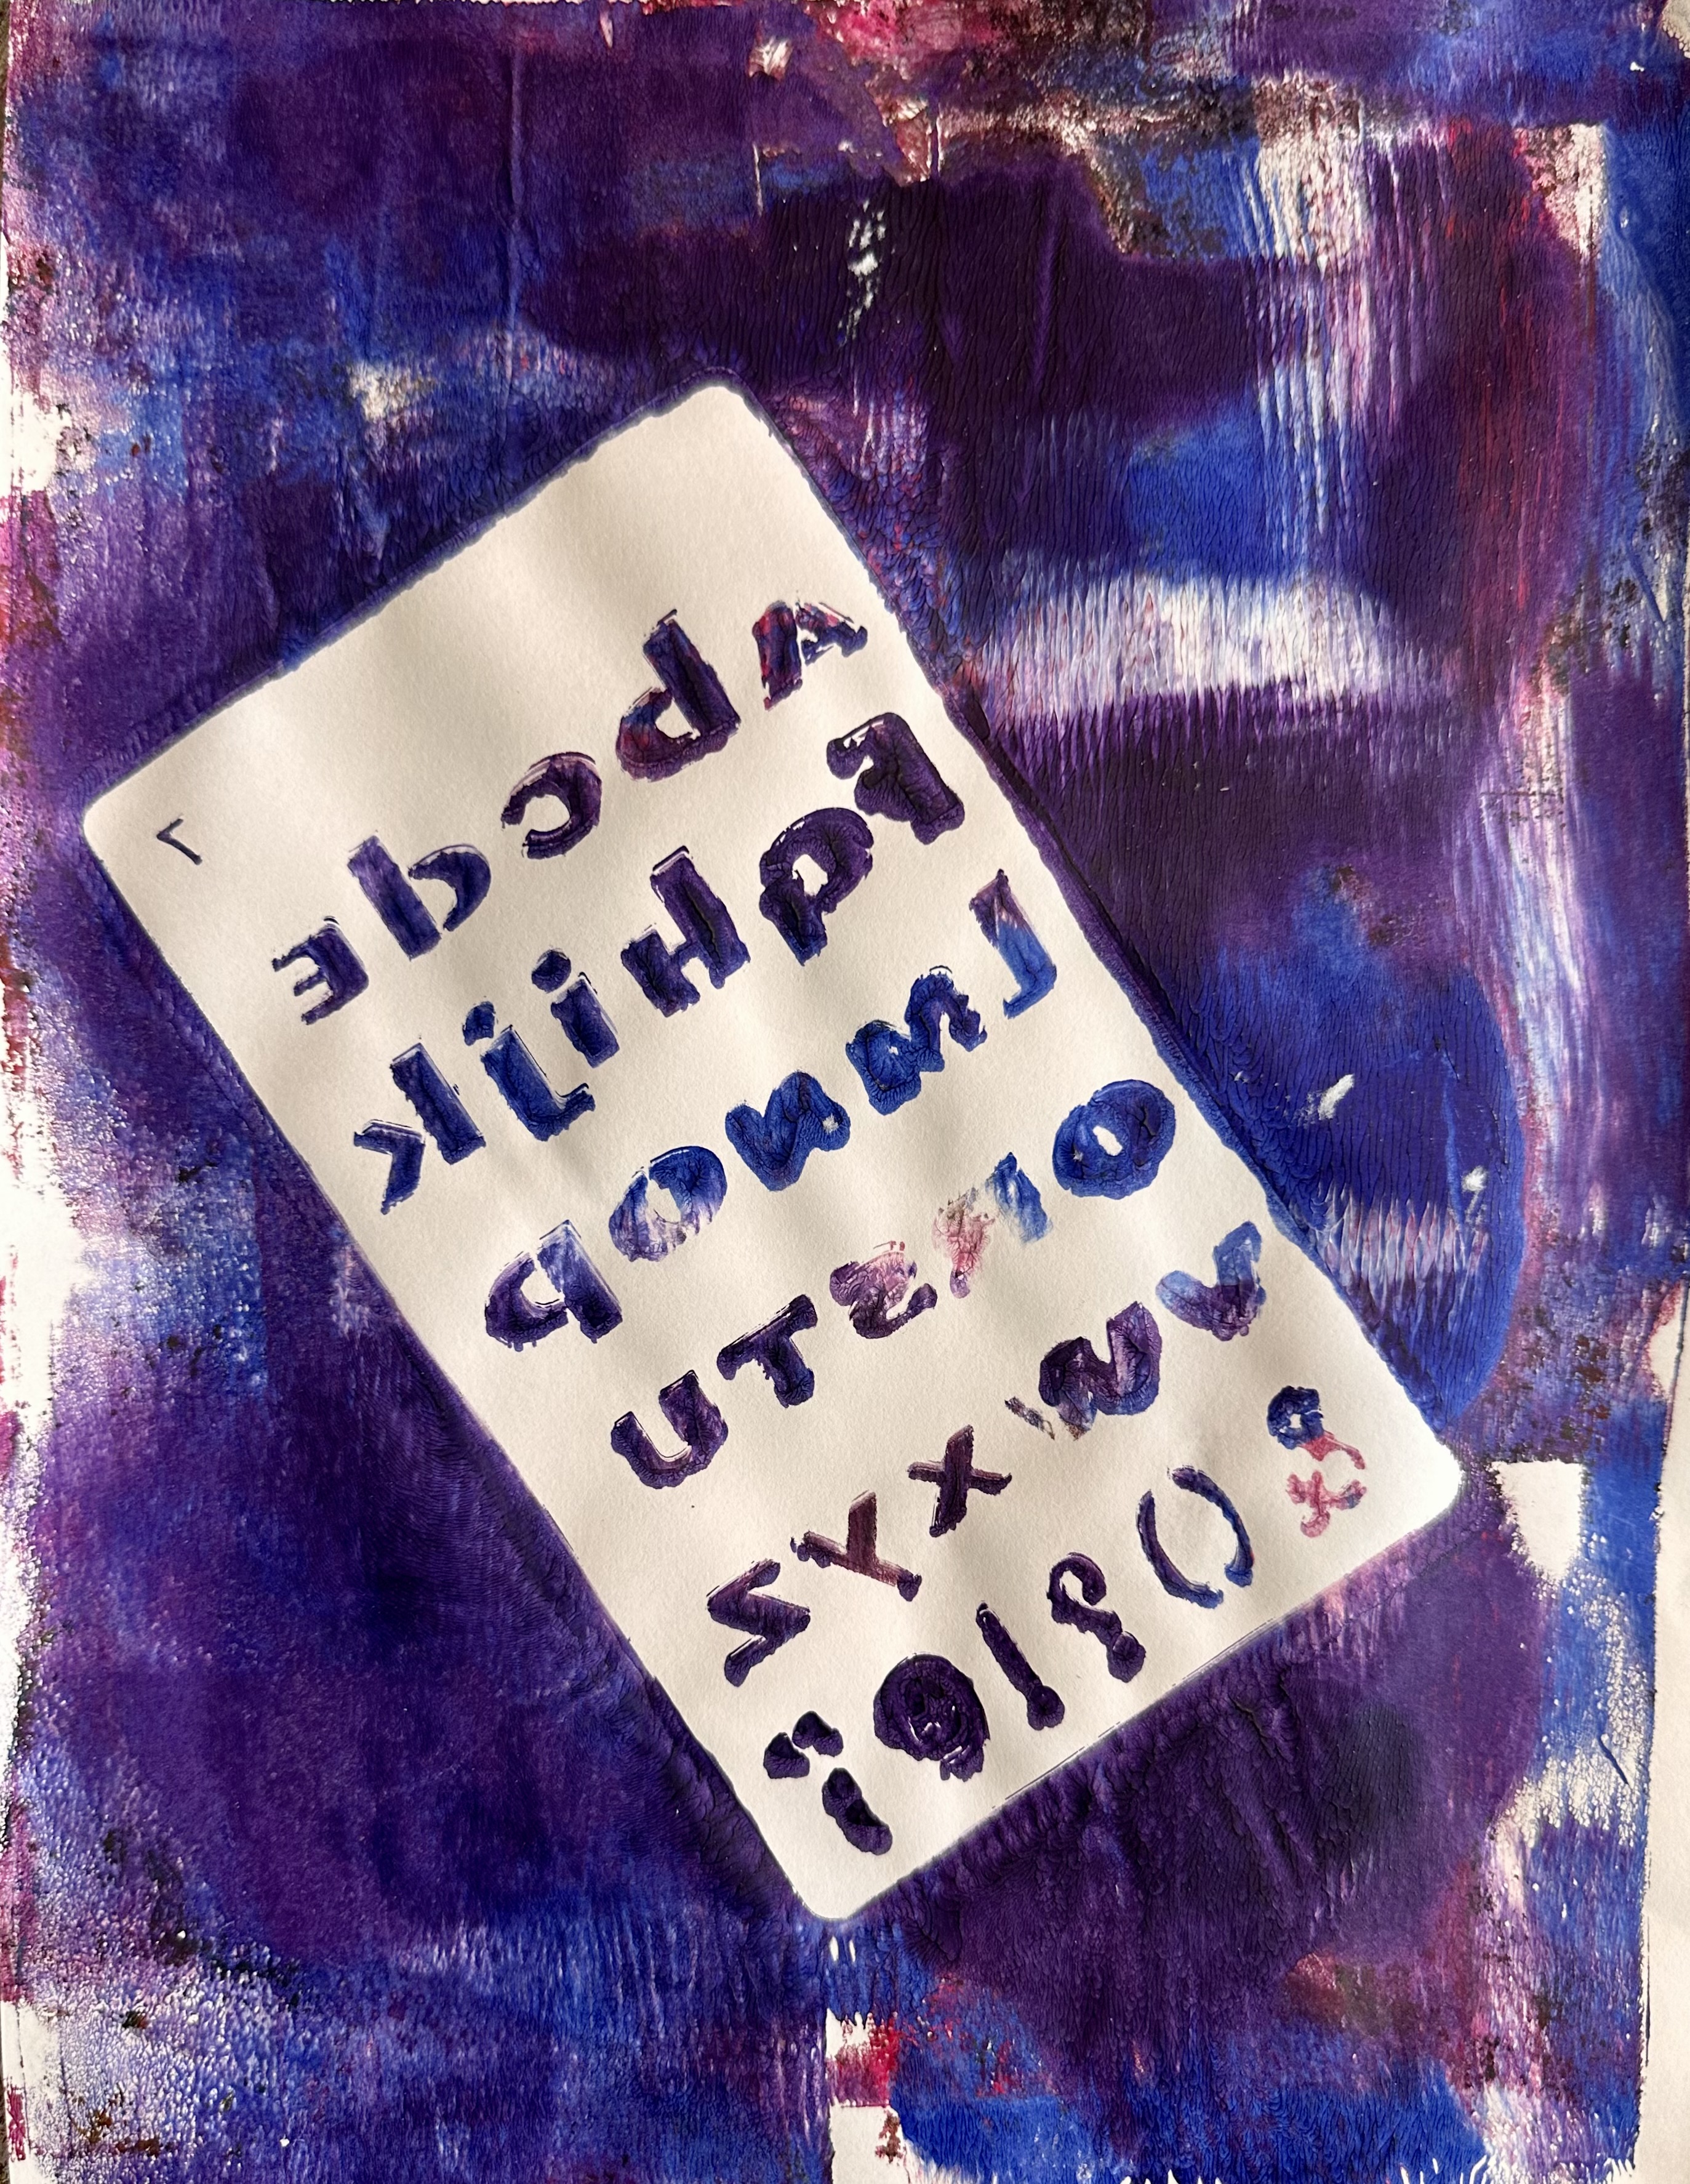 AbcdE
FgHijK
LmnoP
QrSTU
VWXYZ
&()?!@